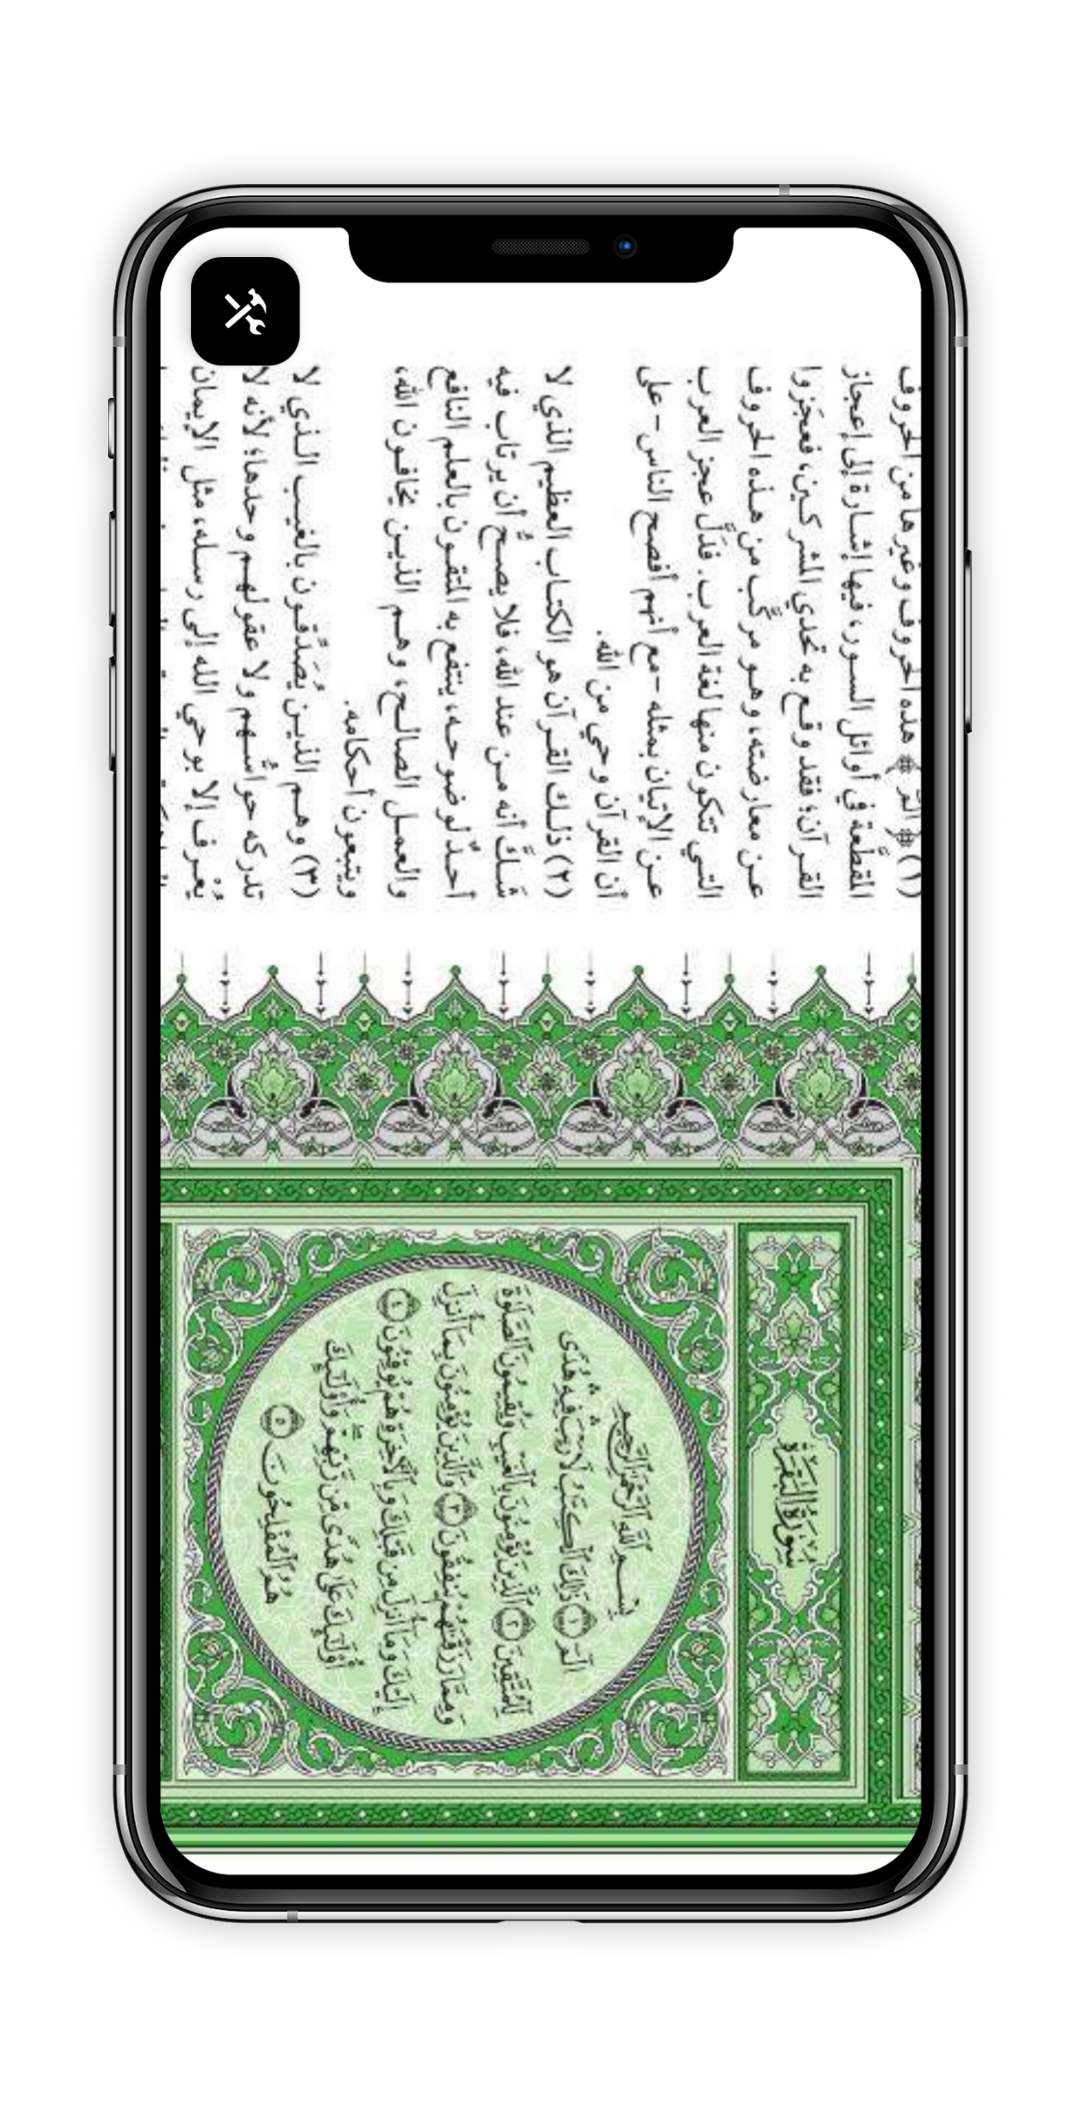 سُورَةُ البَقَرَةِ
بِسْمِ ٱللَّهِ ٱلرَّحْمَٰنِ ٱلرَّحِيمِ
الٓمٓ ١ ذَٰلِكَ ٱلْكِتَٰبُ لَا رَيْبَۛ فِيهِۛ هُدًى
لِّلْمُتَّقِينَ ٢ ٱلَّذِينَ يُؤْمِنُونَ بِٱلْغَيْبِ وَيُقِيمُونَ ٱلصَّلَوٰةَ
وَمِمَّا رَزَقْنَٰهُمْ يُنفِقُونَ ٣ وَٱلَّذِينَ يُؤْمِنُونَ بِمَآ أُنزِلَ
إِلَيْكَ وَمَآ أُنزِلَ مِن قَبْلِكَ وَبِٱلْءَاخِرَةِ هُمْ يُوقِنُونَ ٤
أُو۟لَٰٓئِكَ عَلَىٰ هُدًى مِّن رَّبِّهِمْۖ وَأُو۟لَٰٓئِكَ
هُمُ ٱلْمُفْلِحُونَ ٥
(١) ﴿الٓمٓ﴾ هذه الحروف وغيرها من الحروف
المقطَّعة في أوائل السور، فيها إشارة إلى إعجاز
القرآن؛ فقد وقع به تحدي المشركين، فعجَزوا
عن معارضته، وهو مركَّب من هذه الحروف
التي تتكون منها لغة العرب. فدَلَّ عجز العرب
عن الإتيان بمثله -مع أنهم أفصح الناس- على
أن القرآن وحي من الله.
(٢) ذلك القرآن هو الكتاب العظيم الذي لا
شَكَّ أنه من عند الله، فلا يصحُّ أن يرتاب فيه
أحدٌ لوضوحه، ينتفع به المتقون بالعلم النافع
والعمل الصالح، وهم الذين يخافون الله،
ويتبعون أحكامه.
(٣) وهم الذين يُصَدِّقون بالغيب الذي لا
تدركه حواسُّهم ولا عقولهم وحدها؛ لأنه لا
يُعْرف إلا بوحي الله إلى رسله، مثل الإيمان